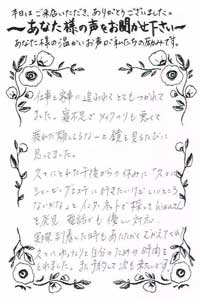 本日は ご来店いただき、ありがとうございました。
〜あなた様の声をお聞かせ下さい〜
あなた様の温かいお声が私たちの励みです。
仕事と家事に追われてとてもつかれて
ました。寝不足でメイクのりも悪くて
疲れた顔してるなーと鏡を見るたびに
思ってました。
久々にとれた子供からの休みに「久々に
シェービングエステに行きたいけど いいところ
ないかな」と インターネットで探して
を発見 電話でも優しい対応
実際到着した時もあたたかくむかえてくれ
久々にゆったりと自分のための時間を
とれました。また予約して次も来たいです。